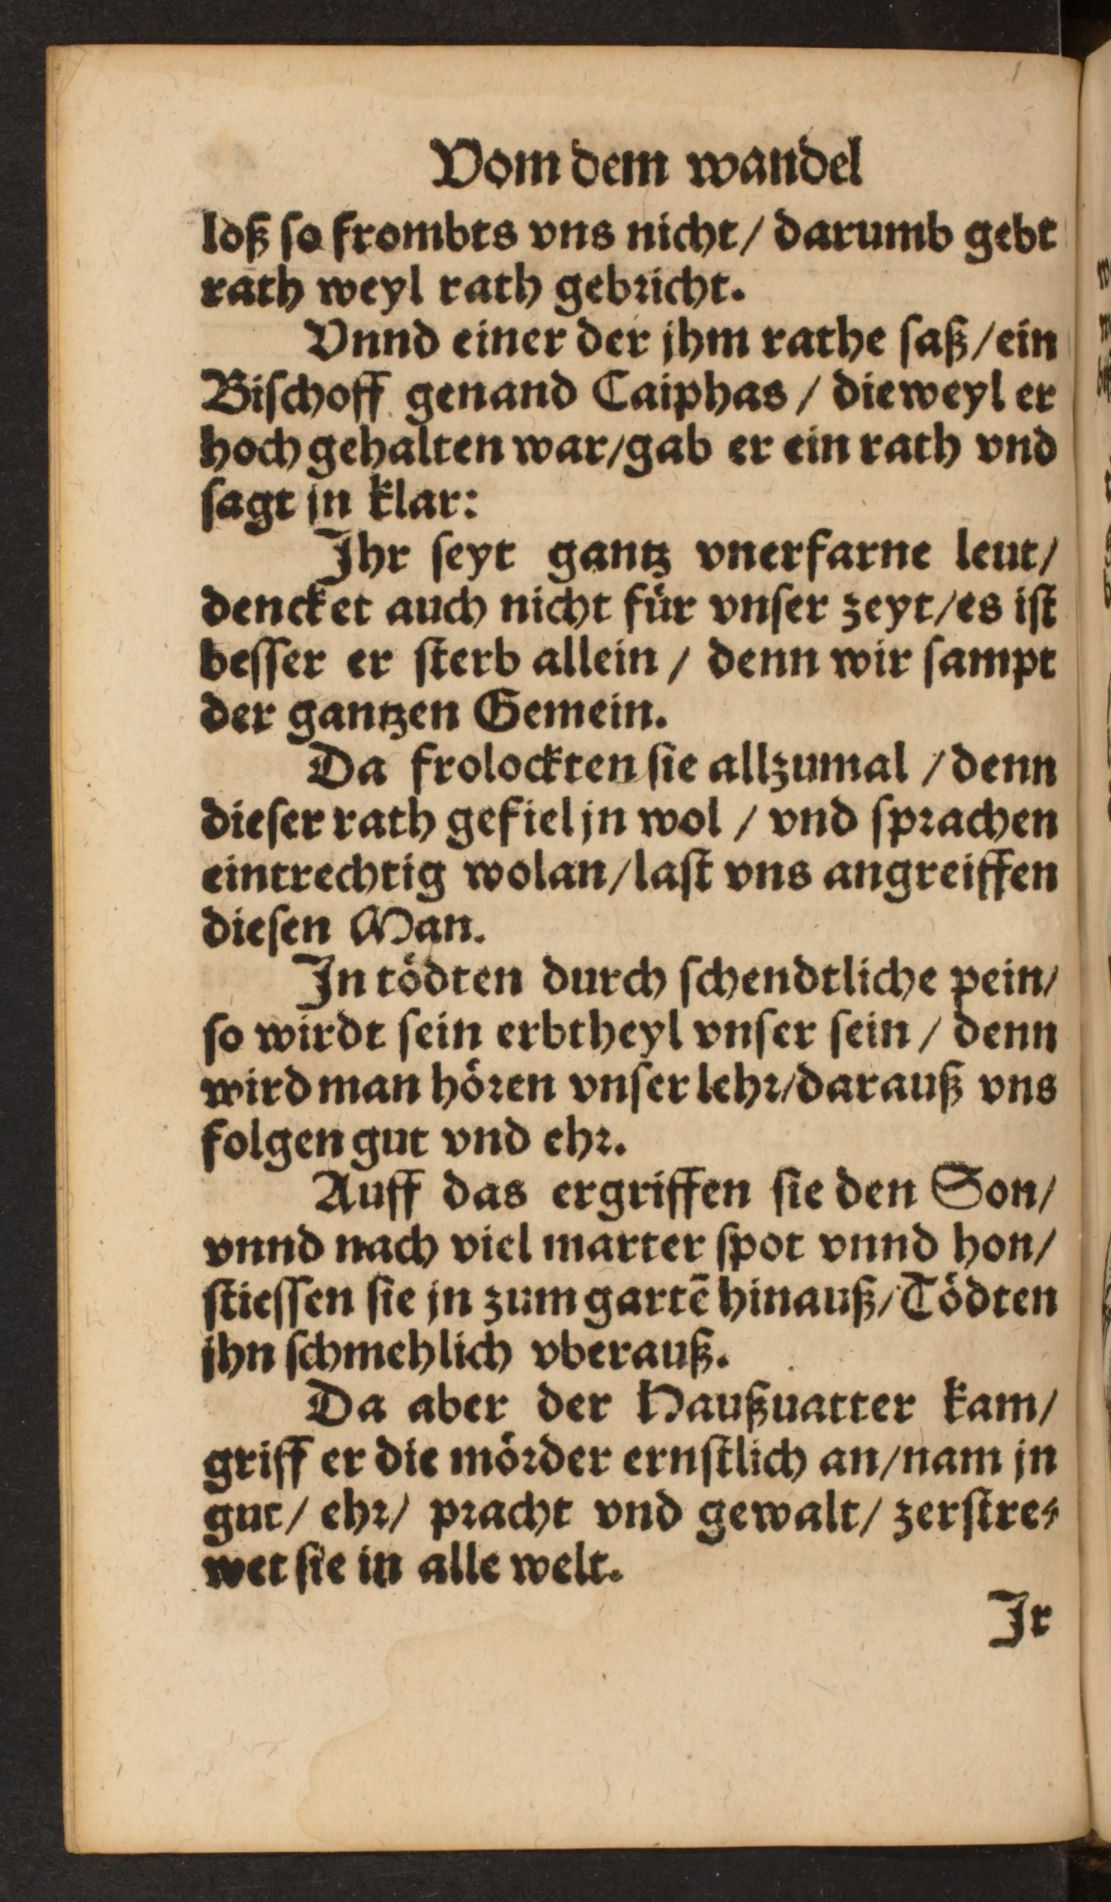 Vom dem wandel
loß so frombts vns nicht / darumb gebt
rath weyl rath gebricht.
Vnnd einer der jhm rathe saß / ein
Bischoff genand Caiphas / dieweyl er
hoch gehalten war / gab er ein rath vnd
sagt jn klar:
Jhr seyt gantz vnerfarne leut /
dencket auch nicht für vnser zeyt / es ist
besser er sterb allein / denn wir sampt
der gantzen Gemein.
Da frolockten sie allzumal / denn
dieser rath gefiel jn wol / vnd sprachen
eintrechtig wolan / last vns angreiffen
diesen Man.
Jn tödten durch schendtliche pein /
so wirdt sein erbtheyl vnser sein / denn
wird man hören vnser lehr / darauß vns
folgen gut vnd ehr.
Auff das ergriffen sie den Son /
vnnd nach viel marter spot vnnd hon /
stiessen sie jn zum gartẽ hinauß / Tödten
jhn schmehlich vberauß.
Da aber der Haußuatter kam /
griff er die mörder ernstlich an / nam jn
gut / ehr / pracht vnd gewalt / zerstre⸗
wet sie in alle welt.
Jr